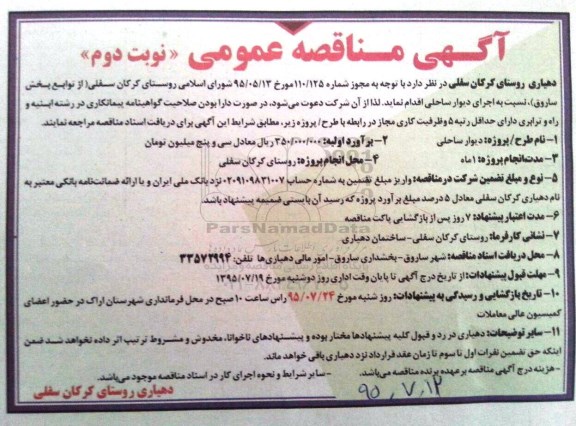 آگهی مناقصه عمومی « نوبت دوم »
دهیاری روستای کرکان سفلی در نظر دارد با توجه به مجوز شماره ۱۱۰/۱۲۵ مورخ ۹۵/۰۵/۱۳ شورای اسلامی روستای کرکان سفلی( از توابع بخش
ساروق)، نسبت به اجرای دیوار ساحلی اقدام نماید. لذا از آن شرکت دعوت می‌شود، در صورت دارا بودن صلاحیت گواهینامه پیمانکاری در رشته ابنیه و
راه و ترابری دارای حداقل رتبه ۵ وظرفیت کاری مجاز در رابطه با طرح/ پروژه زیر، مطابق شرایط این آگهی برای دریافت اسناد مناقصه مراجعه نمایند.
۱- نام طرح/ پروژه: دیوار ساحلی ۲- برآورد اولیه: ۳۵۰/۰۰۰/۰۰۰ ریال معادل سی و پنج میلیون تومان
۳- مدت انجام پروژه: ۱ماه ۴- محل انجام پروژه: روستای کرکان سفلی
۵- نوع و مبلغ تضمین شرکت در مناقصه: واریز مبلغ تضمین به شماره حساب ۰۲۰۹۱۰۹۸۳۱۰۰۷ نزد بانک ملی ایران و یا ارائه ضمانت‌نامه بانکی معتبر به
نام دهیاری کرکان سفلی معادل ۵ درصد مبلغ برآورد پروژه که رسید آن بایستی ضمیمه پیشنهاد باشد.
۶- مدت اعتبار پیشنهاد: ۷ روز پس از بازگشایی پاکت مناقصه
۷- نشانی کارفرما: روستای کرکان سفلی- ساختمان دهیاری
۸- محل دریافت اسناد مناقصه: شهر ساروق- بخشداری ساروق- امور مالی دهیاری‌ها تلفن: ۳۳۵۷۲۹۹۴
۹- مهلت قبول پیشنهادات: از تاریخ درج آگهی تا پایان وقت اداری روز دوشنبه مورخ ۱۳۹۵/۰۷/۱۹
۱۰- تاریخ بازگشایی و رسیدگی به پیشنهادات: روز شنبه مورخ ۹۵/۰۷/۲۴ راس ساعت ۱۰ صبح در محل فرمانداری شهرستان اراک در حضور اعضای
کمیسیون عالی معاملات
۱۱- سایر توضیحات: دهیاری در رد و قبول کلیه پیشنهادها مختار بوده و پیشنهادهای ناخوانا، مخدوش و مشروط ترتیب اثر داده نخواهد شد ضمن
اینکه حق تضمین نفرات اول تا سوم تا زمان عقد قرارداد نزد دهیاری باقی خواهد ماند.
- هزینه درج آگهی مناقصه بر عهده برنده مناقصه می‌باشد. - سایر شرایط و نحوه اجرای کار در اسناد مناقصه موجود می‌باشد.
دهیاری روستای کرکان سفلی
۹۵,۷,۱۲
ParsNamadData